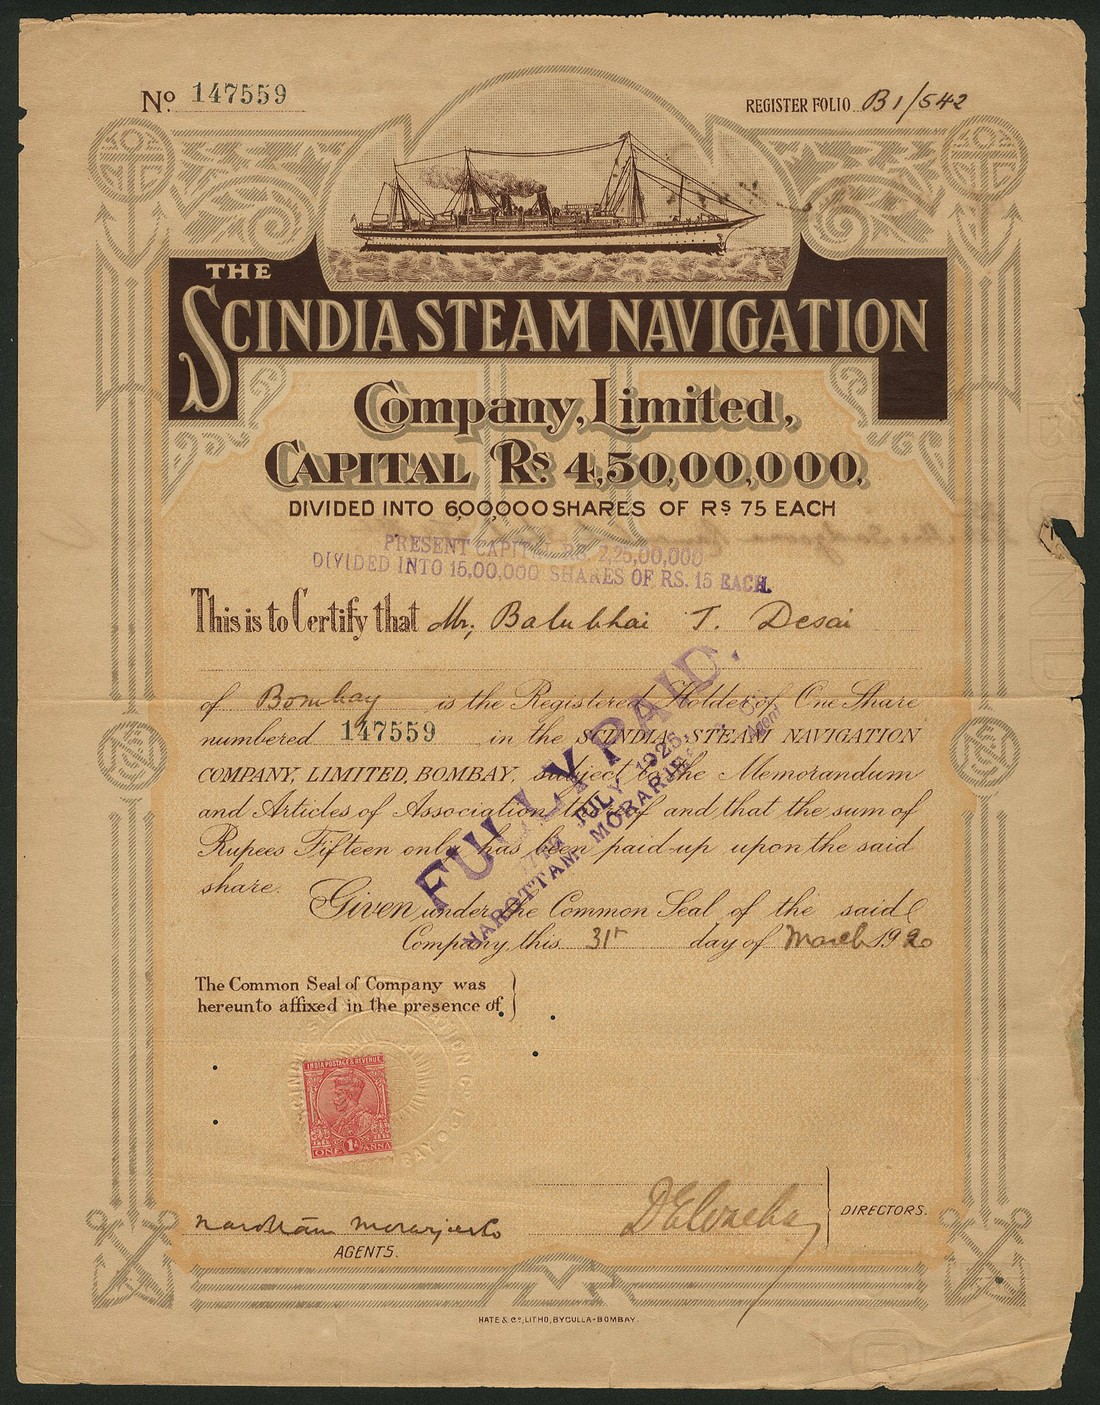 No. 147559
REGISTER FOLIO B1/542
THE
SCINDIA STEAM NAVIGATION
Company, Limited,
CAPITAL Rs 4,50,00,000,
DIVIDED INTO 6,00,000 SHARES OF Rs 75 EACH
PRESENT CAPITAL RS. 2,25,00,000
DIVIDED INTO 15,00,000 SHARES OF RS. 15 EACH.
This is to Certify that Mr, Balubhai T. Desai
of Bombay is the Registered Holder of One Share
numbered 147559 in the SCINDIA STEAM NAVIGATION
COMPANY, LIMITED, BOMBAY, subject to the Memorandum
and Articles of Association thereof and that the sum of
Rupees Fifteen only has been paid-up upon the said
share.
FULLY PAID.
JULY 1925
NAROTTAM MORARJEE & Co.
Agent
Given under the Common Seal of the said
Company this 31st day of March 1920
The Common Seal of Company was
hereunto affixed in the presence of
INDIA POSTAGE & REVENUE
1A
ONE ANNA
Narottam Morarjee & Co
AGENTS.
DIRECTORS.
HATE & Co., LITHO, BYCULLA-BOMBAY.